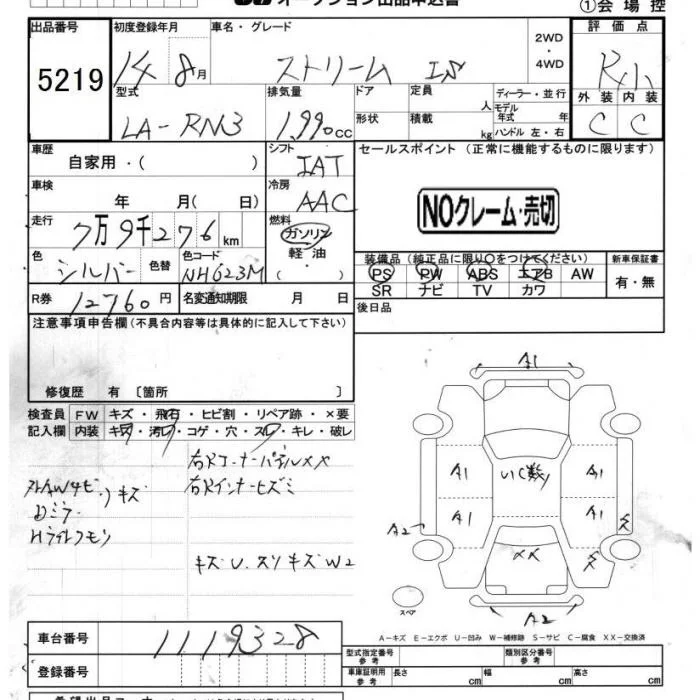 オークション出品申込書
①会場控
出品番号 初度登録年月 車名・グレード 2WD・4WD 評価点
5219 14 8月 ストリーム iS R小
外装 内装
C C
型式 排気量 ドア 定員 人 ディーラー・並行
LA-RN3 1990cc 形状 積載 kg モデル年式 年
ハンドル 左・右
車歴 自家用・( ) シフト IAT セールスポイント(正常に機能するものに限ります)
車検 年 月( 日) 冷房 AAC
NOクレーム・売切
走行 7万9千276km 燃料 ガソリン 軽油 ( )
色 シルバー 色替 色コード NH623M
装備品(純正品に限り○をつけてください) 新車保証書
PS PW ABS エアB AW 有・無
SR ナビ TV カワ
R券 12760円 名変通知期限 月 日
後日品
注意事項申告欄(不具合内容等は具体的に記入して下さい)
修復歴 有 〔箇所 〕
検査員 FW キズ・飛石・ヒビ割・リペア跡・×要
記入欄 内装 キズ・汚れ・コゲ・穴・スレ・キレ・破レ
右Rコーナーパネル××
右Rインナーヒズミ
キズ
Dミラー
キズU.スリキズW2
A1
A1
A1
A1
A1
A2
××
A2
スペア
A-キズ E-エクボ U-凹み W-補修跡 S-サビ C-腐食 XX-交換済
車台番号 1119328
登録番号
型式指定番号 参考 類別区分番号 参考
車庫証明用 参考 長さ cm 幅 cm 高さ cm